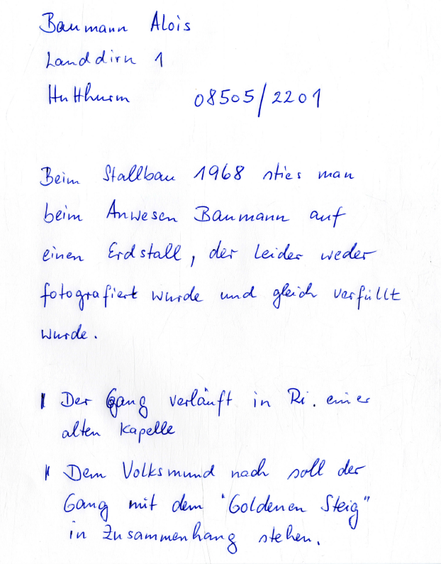 Baumann Alois
Landdirn 1
Hutthurm 08505/2201
Beim Stallbau 1968 sties man
beim Anwesen Baumann auf
einen Erdstall, der leider weder
fotografiert wurde und gleich verfüllt
wurde.
Der Gang verläuft in Ri. einer
alten Kapelle
Dem Volksmund nach soll der
Gang mit dem "Goldenen Steig"
in Zusammenhang stehen.